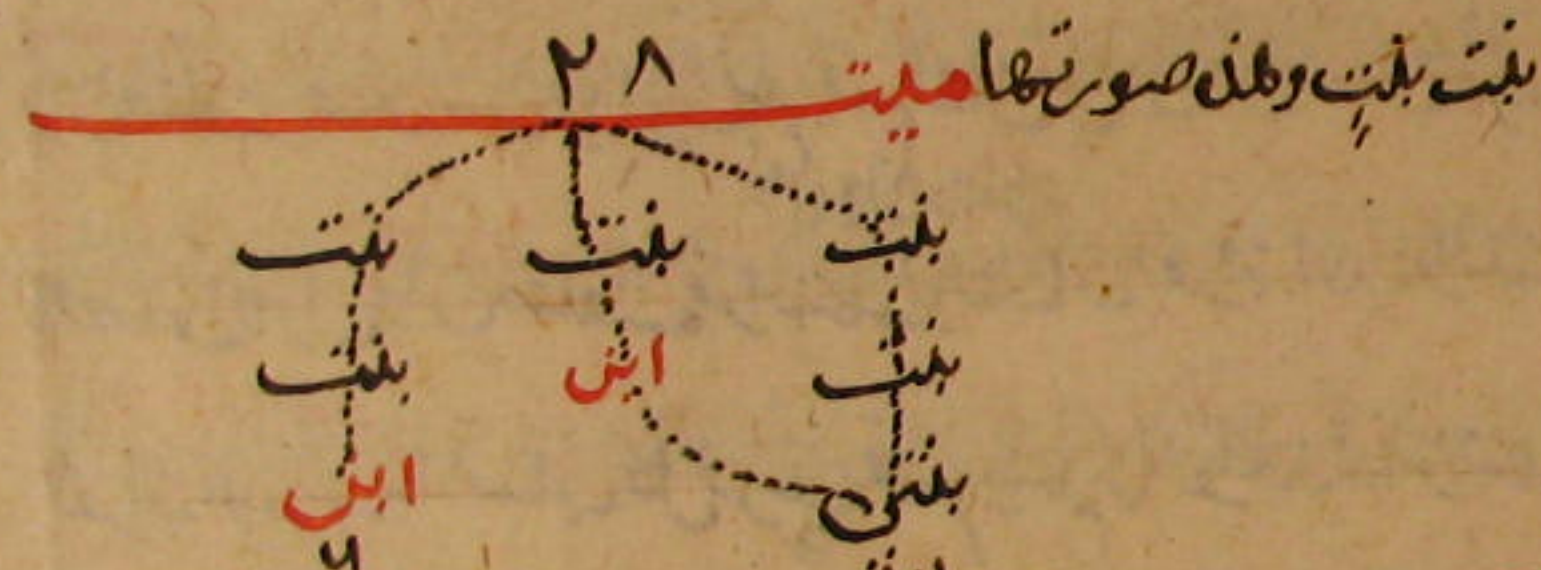 بنت بنتٍ وهذه صورتها ميت
٢٨
بنت بنت بنت
بنت ابن بنت
بنتين ابن
٦